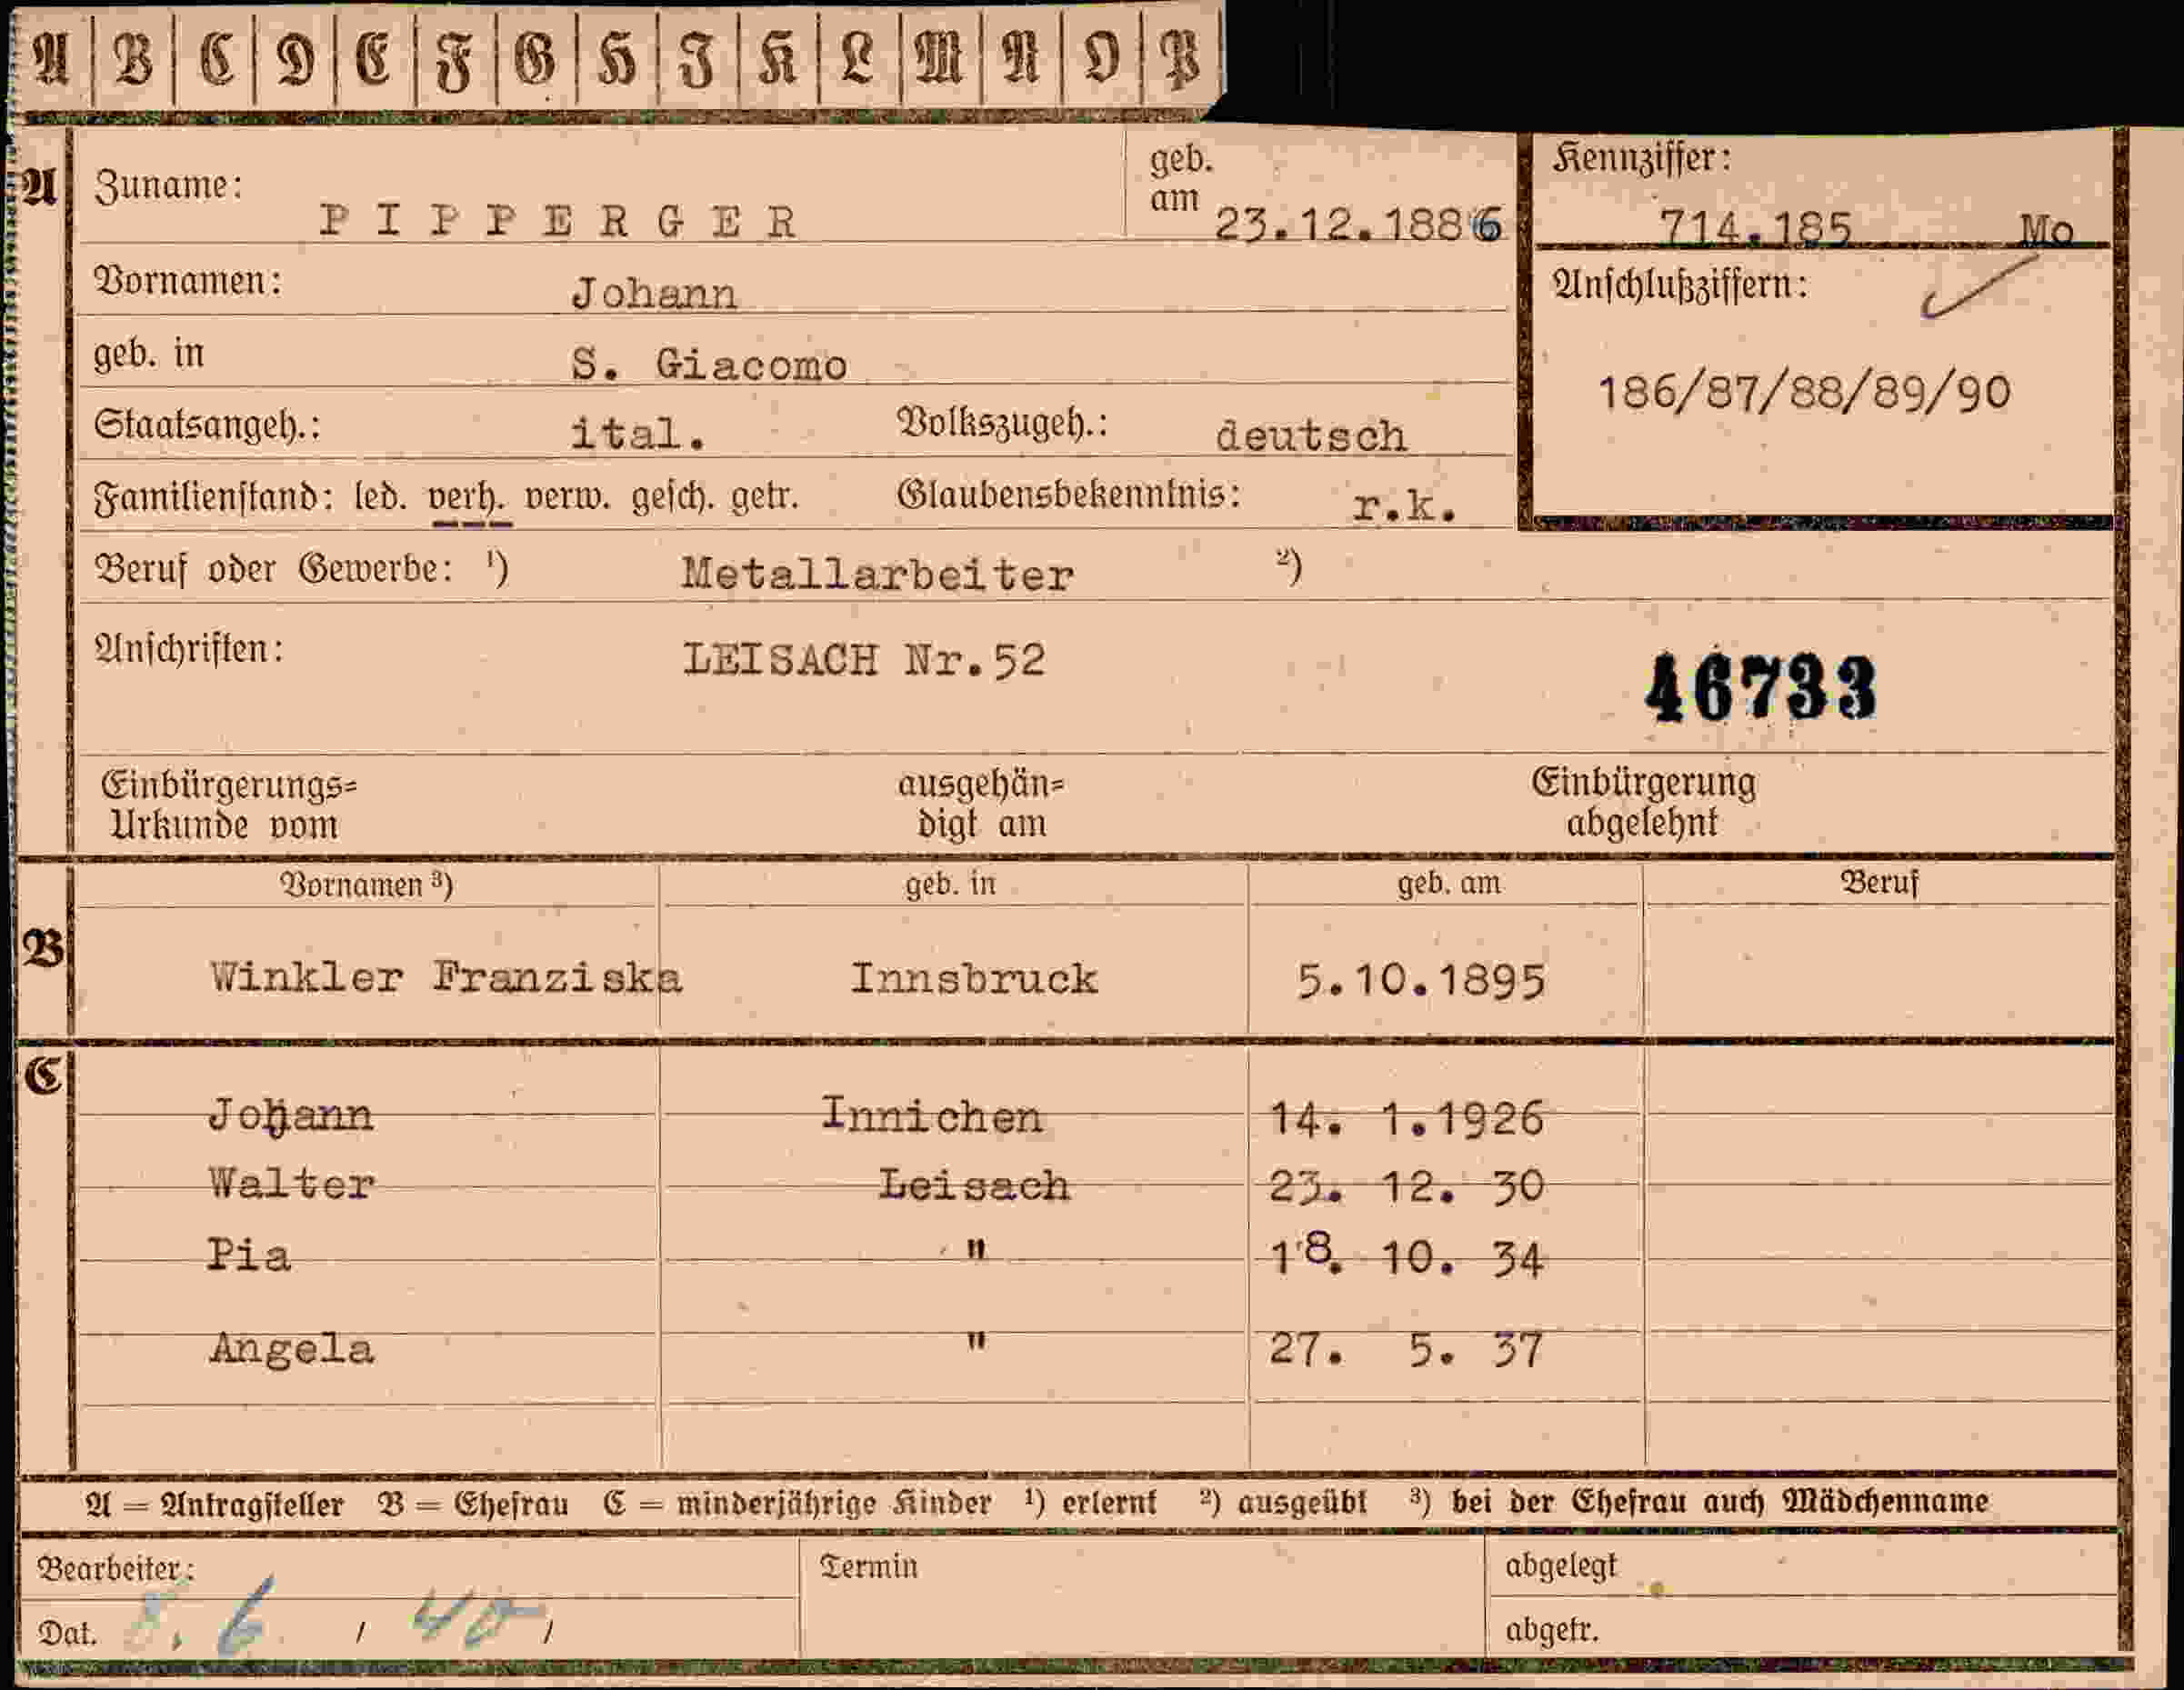 A B C D E F G H I K L M N O P
A Zuname: PIPPERGER geb. am 23.12.1886 Kennziffer: 714.185 Mo
Vornamen: Johann Anschlußziffern:
geb. in S. Giacomo 186/87/88/89/90
Staatsangeh.: ital. Volkszugeh.: deutsch
Familienstand: led. verh. verw. gesch. getr. Glaubensbekenntnis: r.k.
Beruf oder Gewerbe: ¹) Metallarbeiter ²)
Anschriften: LEISACH Nr.52 46733
Einbürgerungs= ausgehän= Einbürgerung
Urkunde vom digt am abgelehnt
Vornamen ³) geb. in geb. am Beruf
B Winkler Franziska Innsbruck 5.10.1895
C
Johann Innichen 14. 1.1926
Walter Leisach 23. 12. 30
Pia " 18. 10. 34
Angela " 27. 5. 37
A = Antragsteller B = Ehefrau C = minderjährige Kinder ¹) erlernt ²) ausgeübt ³) bei der Ehefrau auch Mädchenname
Bearbeiter: Termin abgelegt
Dat. 6 / 40 / abgetr.